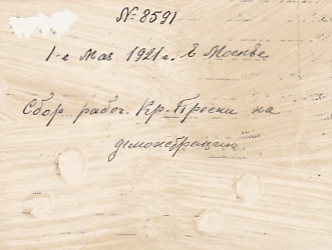 № 8591
1-е Мая 1921 г. в Москве
Сбор рабоч. Кр. Пресни на
демонстрацию.